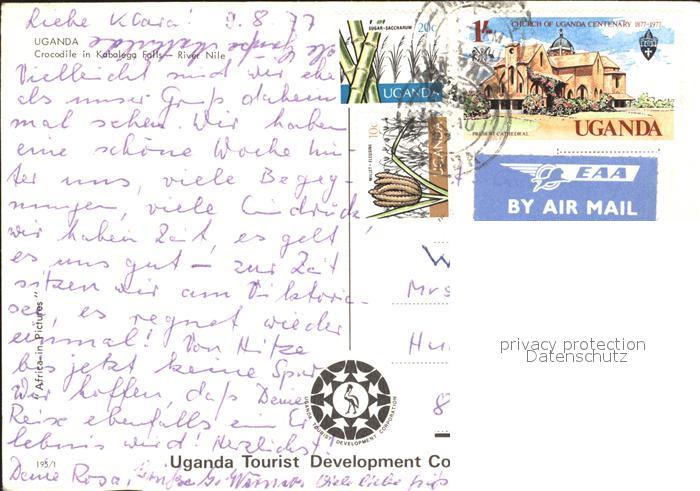 Liebe Klara! 9.8.77
UGANDA
Crocodile in Kabalega Falls – River Nile
Vielleicht sind wir ehe
als unser Gruß daheim
mal sehen. Wir haben
eine schöne Woche hin-
ter uns, viele Begeg
nungen, viele Eindrücke,
wir haben Zeit, es geht
es uns gut – zur Zeit
sitzen wir am Viktoria-
see, es regnet wieder
einmal! Von Hitze
bis jetzt keine Spur
Wir hoffen, daß Deine
Reise ebenfalls ein Er
lebnis wird! Herzlichst!
Deine Rosa, Werner Viele liebe
"Africa in Pictures"
195/1
SUGAR-SACCHARUM
20c
UGANDA
1/-
CHURCH OF UGANDA CENTENARY 1877-1977
PRESENT CATHEDRAL
UGANDA
10c
MILLET-ELEUSINE
UGANDA
EAA
BY AIR MAIL
W
Mrs
Hu
8
privacy protection
Datenschutz
UGANDA TOURIST DEVELOPMENT CORPORATION
Uganda Tourist Development Co